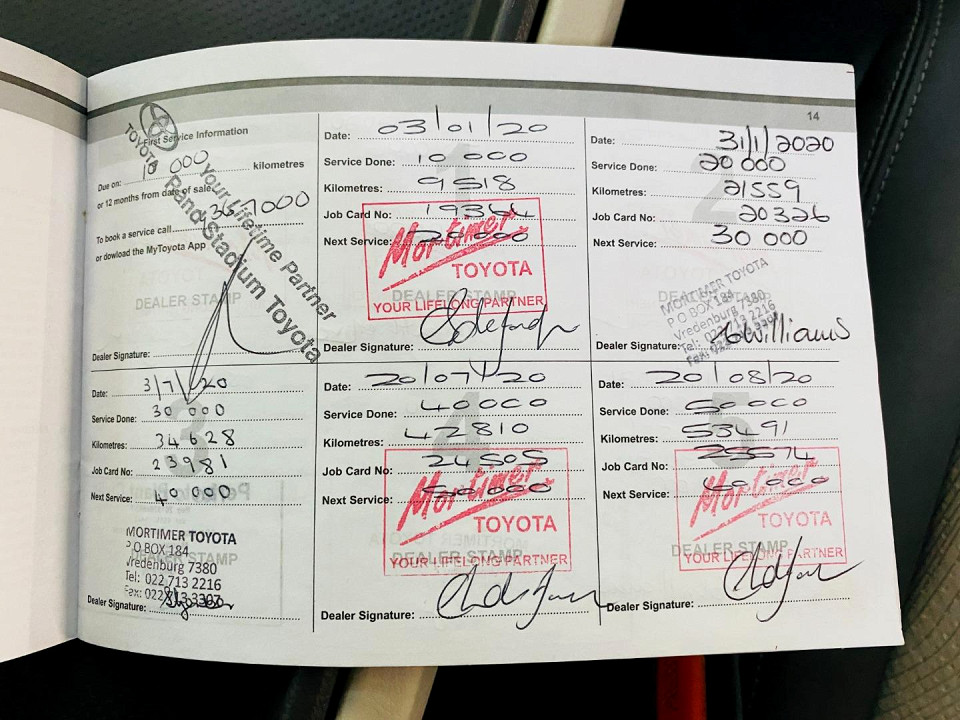 14
First Service Information
Due on: 10 000 kilometres
or 12 months from date of sale
To book a service call
or dowload the MyToyota App
TOYOTA
Your Lifetime Partner
Pand Stadium Toyota
DEALER STAMP
Dealer Signature:
1
Date: 03/01/20
Service Done: 10 000
Kilometres: 9518
Job Card No: 19364
Next Service: 20 000
Mortimer
TOYOTA
DEALER STAMP
YOUR LIFELONG PARTNER
Dealer Signature:
2
Date: 31/1/2020
Service Done: 20 000
Kilometres: 21559
Job Card No: 20326
Next Service: 30 000
DEALER STAMP
MORTIMER TOYOTA
P O BOX 184
Vredenburg 7380
Tel: 022 713 2216
Fax: 022
Dealer Signature: Williams
3
Date: 3/7/20
Service Done: 30 000
Kilometres: 34628
Job Card No: 23981
Next Service: 40 000
MORTIMER TOYOTA
P O BOX 184
DEALER STAMP
Vredenburg 7380
Tel: 022 713 2216
Fax: 022 713 3307
Dealer Signature:
4
Date: 20/07/20
Service Done: 40000
Kilometres: 42810
Job Card No: 24505
Next Service: 50000
Mortimer
TOYOTA
DEALER STAMP
YOUR LIFELONG PARTNER
Dealer Signature:
5
Date: 20/08/20
Service Done: 50000
Kilometres: 53491
Job Card No: 25574
Next Service: 60 000
Mortimer
TOYOTA
DEALER STAMP
YOUR LIFELONG PARTNER
Dealer Signature: